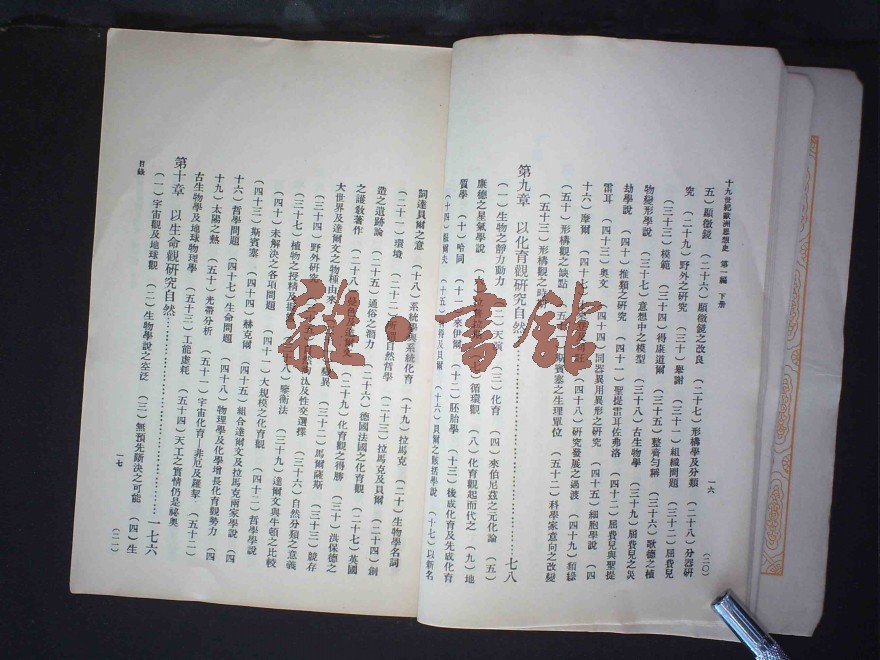 十九世紀歐洲思想史 第一編 下册
一六
(二〇)
五)顯微鏡 (二十六)顯微鏡之改良 (二十七)形構學及分類 (二十八)分器研
究 (二十九)野外之研究 (三十)舉謝 (三十一)組織問題 (三十二)屈費兒
(三十三)模範 (三十四)得康道爾 (三十五)整齊勻稱 (三十六)歌德之植
物變形學說 (三十七)意想中之模型 (三十八)古生物學 (三十九)屈費兒之災
劫學說 (四十)推類之研究 (四十一)聖提雷耳佐弗洛 (四十二)屈費兒與聖提
雷耳 (四十三)奧文 (四十四)同器異用異形之研究 (四十五)細胞學說 (四
十六)摩爾 (四十七) (四十八)研究發展之過渡 (四十九)類緣
(五十)形構觀之缺點 斯賓塞之生理單位 (五十二)科學家意向之改變
(五十三)形構觀之時
第九章 以化育觀研究自然 七八
(一)生物之靜力動力 (二)天演 (三)化育 (四)來伯尼茲之元化論 (五)
康德之星氣學說 (七)循環觀 (八)化育觀起而代之 (九)地
質學 (十)哈同 (十一)來伊爾 (十二)胚胎學 (十三)後成化育及先成化育
(十六)貝爾之概括學說 (十七)以新名
詞達貝爾之意 (十八)系統學與系統化育 (十九)拉馬克 (二十)生物學名詞
(二十一)環境 (二十二)所謂自然哲學 (二十三)拉馬克及貝爾 (二十四)創
造之遺跡論 (二十五)通俗之潛力 (二十六)德國法國之化育觀 (二十七)英國
之謹敎著作 (二十八) (二十九)化育觀之得勝 (三十)洪保德之
大世界及達爾文之物種由來 變異 (三十二)馬爾薩斯 (三十三)競存
(三十四)野外研究 汰及性交選擇 (三十六)自然分類之意義
(三十七)植物之授精及 (三十八)變衡法 (三十九)達爾文與牛頓之比較
(四十)未解決之各項問題 (四十一)大規模之化育觀 (四十二)哲學學說
(四十三)斯賓塞 (四十四)赫克爾 (四十五)組合達爾文及拉馬克兩家學說 (四
十六)哲學問題 (四十七)生命問題 (四十八)物理學及化學增長化育觀勢力 (四
十九)太陽之熱 (五十)光帶分析 (五十一)宇宙化育—非厄及羅挐 (五十二)
古生物學及地球物理學 (五十三)工能虛耗 (五十四)天工之實情仍是祕奧
第十章 以生命觀研究自然 一七六
(一)宇宙觀及地球觀 (二)生物學說之空泛 (三)無預先斷決之可能 (四)生
目錄
一七
(二一)
雜·書館